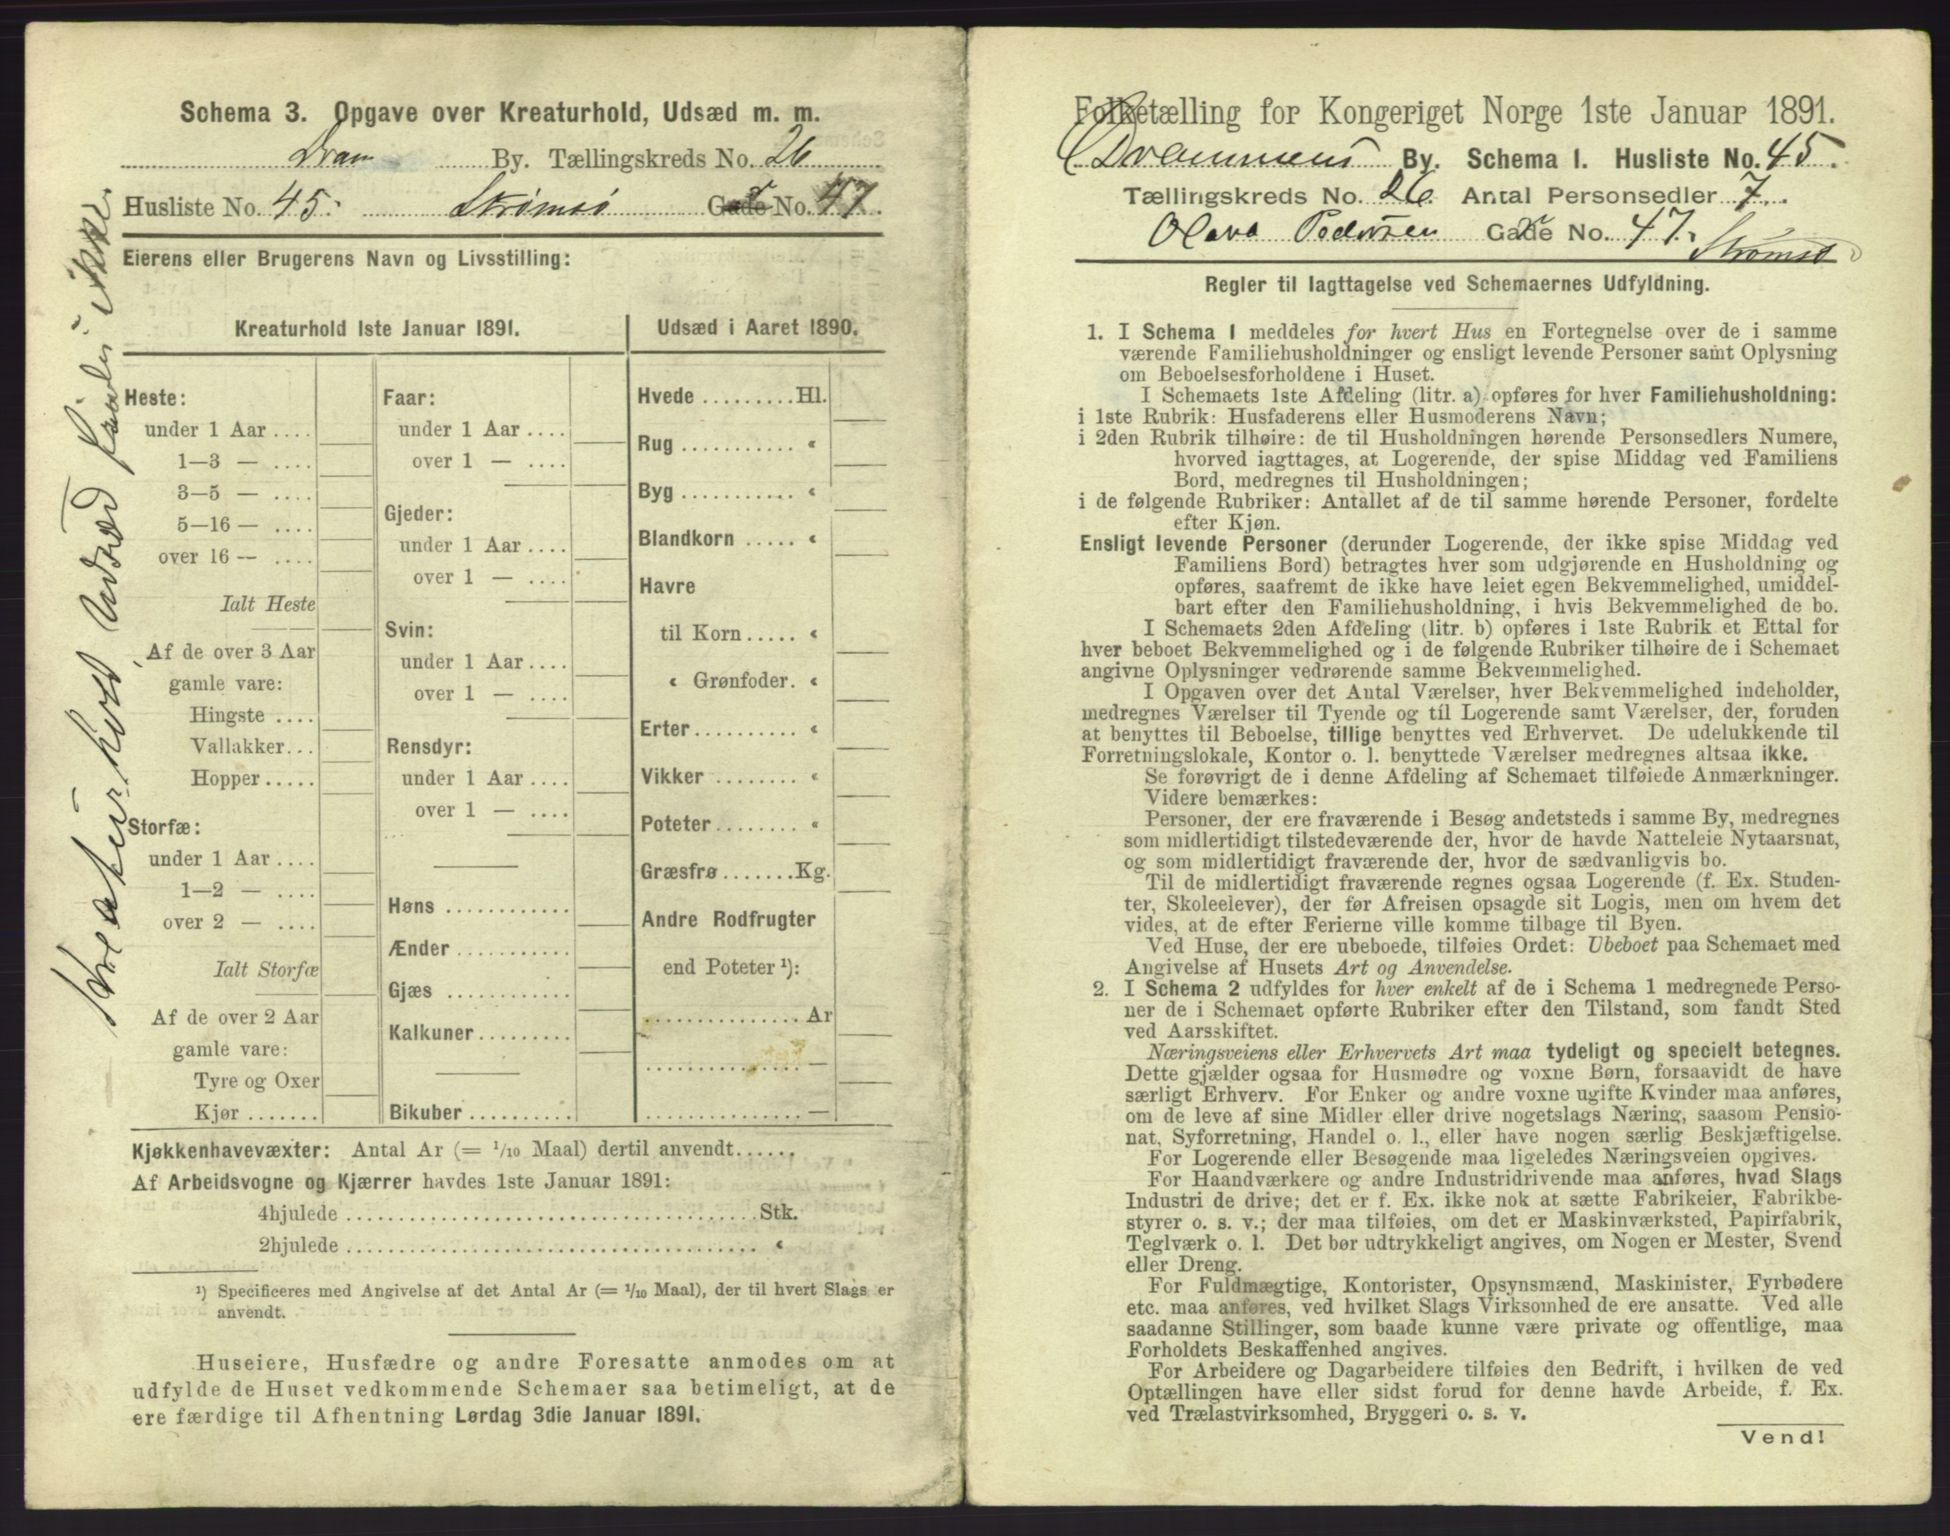 Schema 3. Opgave over Kreaturhold, Udsæd m. m.
Dram By. Tællingskreds No. 26
Husliste No. 45. Strømsø Gade No. 47.
Eierens eller Brugerens Navn og Livsstilling:
Kreaturhold 1ste Januar 1891.
Heste:
under 1 Aar ....
1—3 — ....
3—5 — ....
5—16 — ....
over 16 — ....
Ialt Heste
Af de over 3 Aar
gamle vare:
Hingste ....
Vallakker...
Hopper.....
Storfæ:
under 1 Aar ....
1—2 — ....
over 2 — ....
Ialt Storfæ
Af de over 2 Aar
gamle vare:
Tyre og Oxer
Kjør .......
Faar:
under 1 Aar ....
over 1 — ....
Gjeder:
under 1 Aar ....
over 1 — ....
Svin:
under 1 Aar ....
over 1 — ....
Rensdyr:
under 1 Aar ....
over 1 — ....
Høns ............
Ænder ...........
Gjæs ............
Kalkuner.........
Bikuber ..........
Udsæd i Aaret 1890.
Hvede .........Hl.
Rug ........... «
Byg ........... «
Blandkorn ..... «
Havre
til Korn ..... «
« Grønfoder. «
Erter.......... «
Vikker ........ «
Poteter........ «
Græsfrø.......Kg.
Andre Rodfrugter
end Poteter ¹):
............... Ar
............... —
............... —
Kjøkkenhavevæxter: Antal Ar (= 1/10 Maal) dertil anvendt......
Af Arbeidsvogne og Kjærrer havdes 1ste Januar 1891:
4hjulede ....................................Stk.
2hjulede .................................... «
¹) Specificeres med Angivelse af det Antal Ar (= 1/10 Maal), der til hvert Slags er
anvendt.
Huseiere, Husfædre og andre Foresatte anmodes om at
udfylde de Huset vedkommende Schemaer saa betimeligt, at de
ere færdige til Afhentning Lørdag 3die Januar 1891.
Kreaturhold, Udsæd haves ikke.
Folketælling for Kongeriget Norge 1ste Januar 1891.
Drammens By. Schema I. Husliste No. 45.
Tællingskreds No. 26 Antal Personsedler 7.
Pedersen Gade No. 47.
Strømsø
Regler til Iagttagelse ved Schemaernes Udfyldning.
1. I Schema I meddeles for hvert Hus en Fortegnelse over de i samme
værende Familiehusholdninger og ensligt levende Personer samt Oplysning
om Beboelsesforholdene i Huset.
I Schemaets 1ste Afdeling (litr. a) opføres for hver Familiehusholdning:
i 1ste Rubrik: Husfaderens eller Husmoderens Navn;
i 2den Rubrik tilhøire: de til Husholdningen hørende Personsedlers Numere,
hvorved iagttages, at Logerende, der spise Middag ved Familiens
Bord, medregnes til Husholdningen;
i de følgende Rubriker: Antallet af de til samme hørende Personer, fordelte
efter Kjøn.
Ensligt levende Personer (derunder Logerende, der ikke spise Middag ved
Familiens Bord) betragtes hver som udgjørende en Husholdning og
opføres, saafremt de ikke have leiet egen Bekvemmelighed, umiddel-
bart efter den Familiehusholdning, i hvis Bekvemmelighed de bo.
I Schemaets 2den Afdeling (litr. b) opføres i 1ste Rubrik et Ettal for
hver beboet Bekvemmelighed og i de følgende Rubriker tilhøire de i Schemaet
angivne Oplysninger vedrørende samme Bekvemmelighed.
I Opgaven over det Antal Værelser, hver Bekvemmelighed indeholder,
medregnes Værelser til Tyende og til Logerende samt Værelser, der, foruden
at benyttes til Beboelse, tillige benyttes ved Erhvervet. De udelukkende til
Forretningslokale, Kontor o. l. benyttede Værelser medregnes altsaa ikke.
Se forøvrigt de i denne Afdeling af Schemaet tilføiede Anmærkninger.
Videre bemærkes:
Personer, der ere fraværende i Besøg andetsteds i samme By, medregnes
som midlertidigt tilstedeværende der, hvor de havde Natteleie Nytaarsnat,
og som midlertidigt fraværende der, hvor de sædvanligvis bo.
Til de midlertidigt fraværende regnes ogsaa Logerende (f. Ex. Studen-
ter, Skoleelever), der før Afreisen opsagde sit Logis, men om hvem det
vides, at de efter Ferierne ville komme tilbage til Byen.
Ved Huse, der ere ubeboede, tilføies Ordet: Ubeboet paa Schemaet med
Angivelse af Husets Art og Anvendelse.
2. I Schema 2 udfyldes for hver enkelt af de i Schema 1 medregnede Perso-
ner de i Schemaet opførte Rubriker efter den Tilstand, som fandt Sted
ved Aarsskiftet.
Næringsveiens eller Erhvervets Art maa tydeligt og specielt betegnes.
Dette gjælder ogsaa for Husmødre og voxne Børn, forsaavidt de have
særligt Erhverv. For Enker og andre voxne ugifte Kvinder maa anføres,
om de leve af sine Midler eller drive nogetslags Næring, saasom Pensio-
nat, Syforretning, Handel o. l., eller have nogen særlig Beskjæftigelse.
For Logerende eller Besøgende maa ligeledes Næringsveien opgives.
For Haandværkere og andre Industridrivende maa anføres, hvad Slags
Industri de drive; det er f. Ex. ikke nok at sætte Fabrikeier, Fabrikbe-
styrer o. s. v.; der maa tilføies, om det er Maskinværksted, Papirfabrik,
Teglværk o. l. Det bør udtrykkeligt angives, om Nogen er Mester, Svend
eller Dreng.
For Fuldmægtige, Kontorister, Opsynsmænd, Maskinister, Fyrbødere
etc. maa anføres, ved hvilket Slags Virksomhed de ere ansatte. Ved alle
saadanne Stillinger, som baade kunne være private og offentlige, maa
Forholdets Beskaffenhed angives.
For Arbeidere og Dagarbeidere tilføies den Bedrift, i hvilken de ved
Optællingen have eller sidst forud for denne havde Arbeide, f. Ex.
ved Trælastvirksomhed, Bryggeri o. s. v.
Vend!